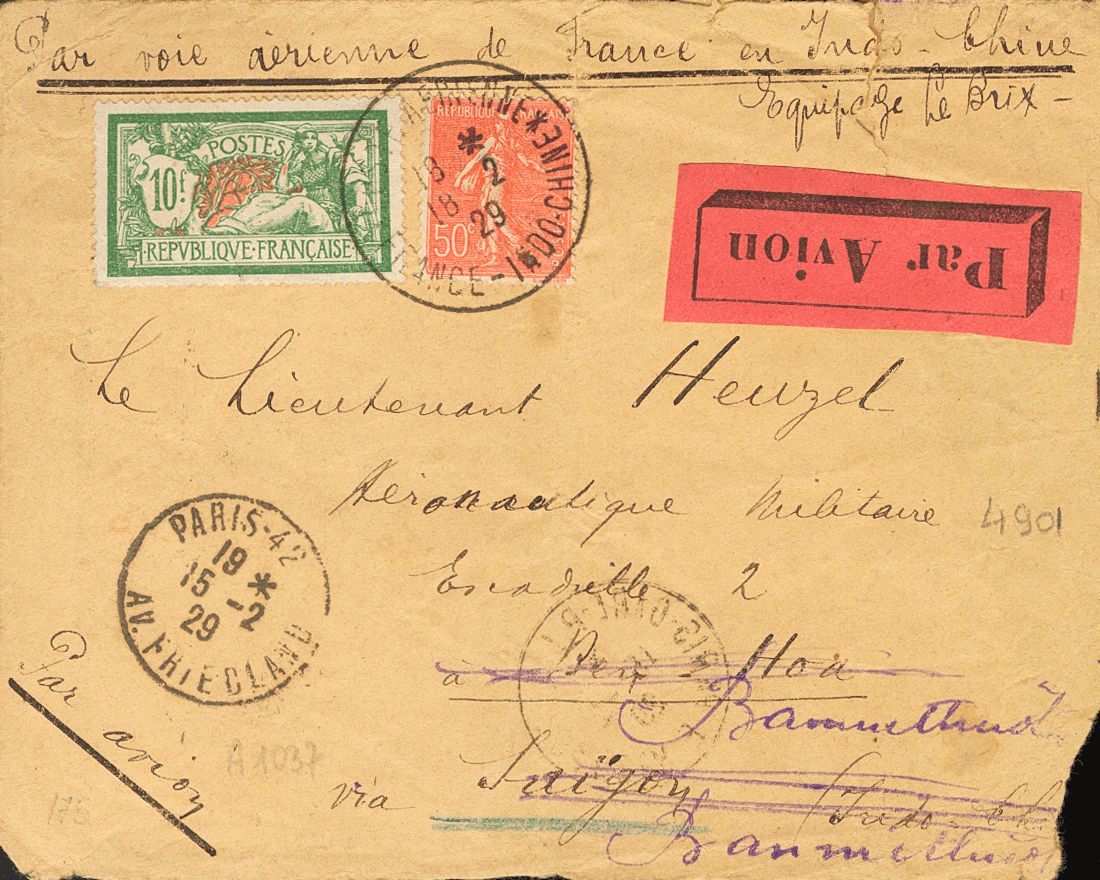 Par voie aérienne de France en Indo-Chine
Equipage Le Brix -
POSTES
10f
REPVBLIQVE·FRANÇAISE
REPUBLIQUE FRANÇAISE
50c
FRANCE - INDO-CHINE *
18 * 2
18 29
Par Avion
Le Lieutenant Heuzel
Aéronautique Militaire
4901
Escadrille 2
PARIS-42
19 *
15 -2
29
AV. FRIEDLAND
à Bien Hoa
Banmethuot
Par avion
A1037
175
via Saïgon (Indo-Chi
Banmethuot